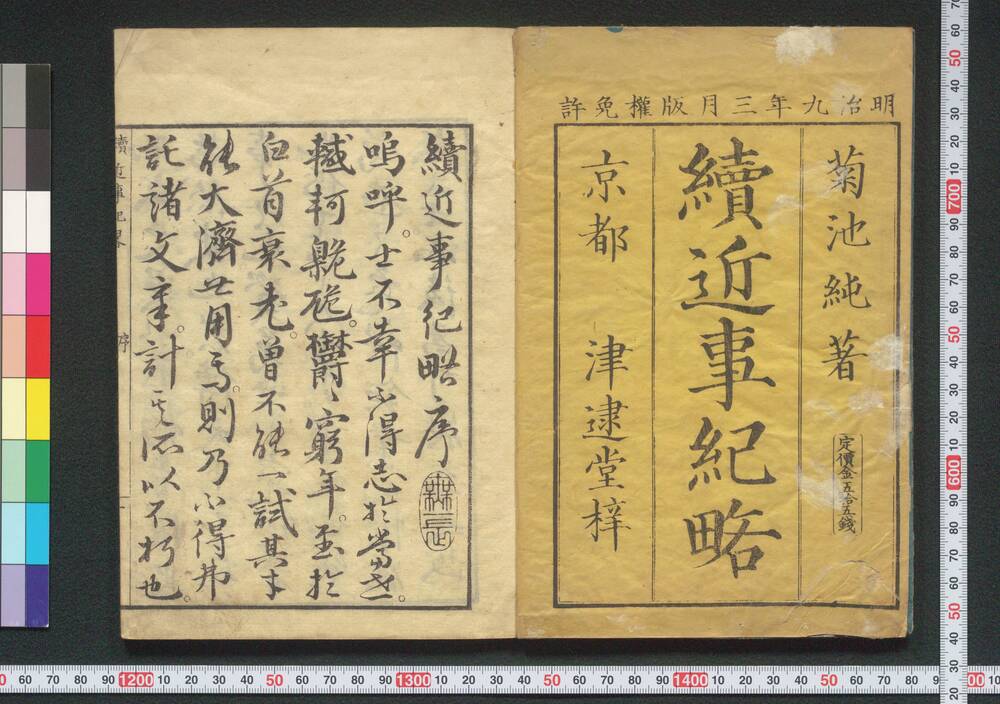 明治九年三月版權免許
菊池純著
定價金五拾五錢
續近事紀略
京都 津逮堂梓
續近事紀略序
嗚呼。士不幸不得志於當世。
轗軻臲卼。鬱〻窮年。至於
白首衰老。曾不能一試其才
能大濟世用焉。則乃不得弗
託諸文章。計其所以不朽也。